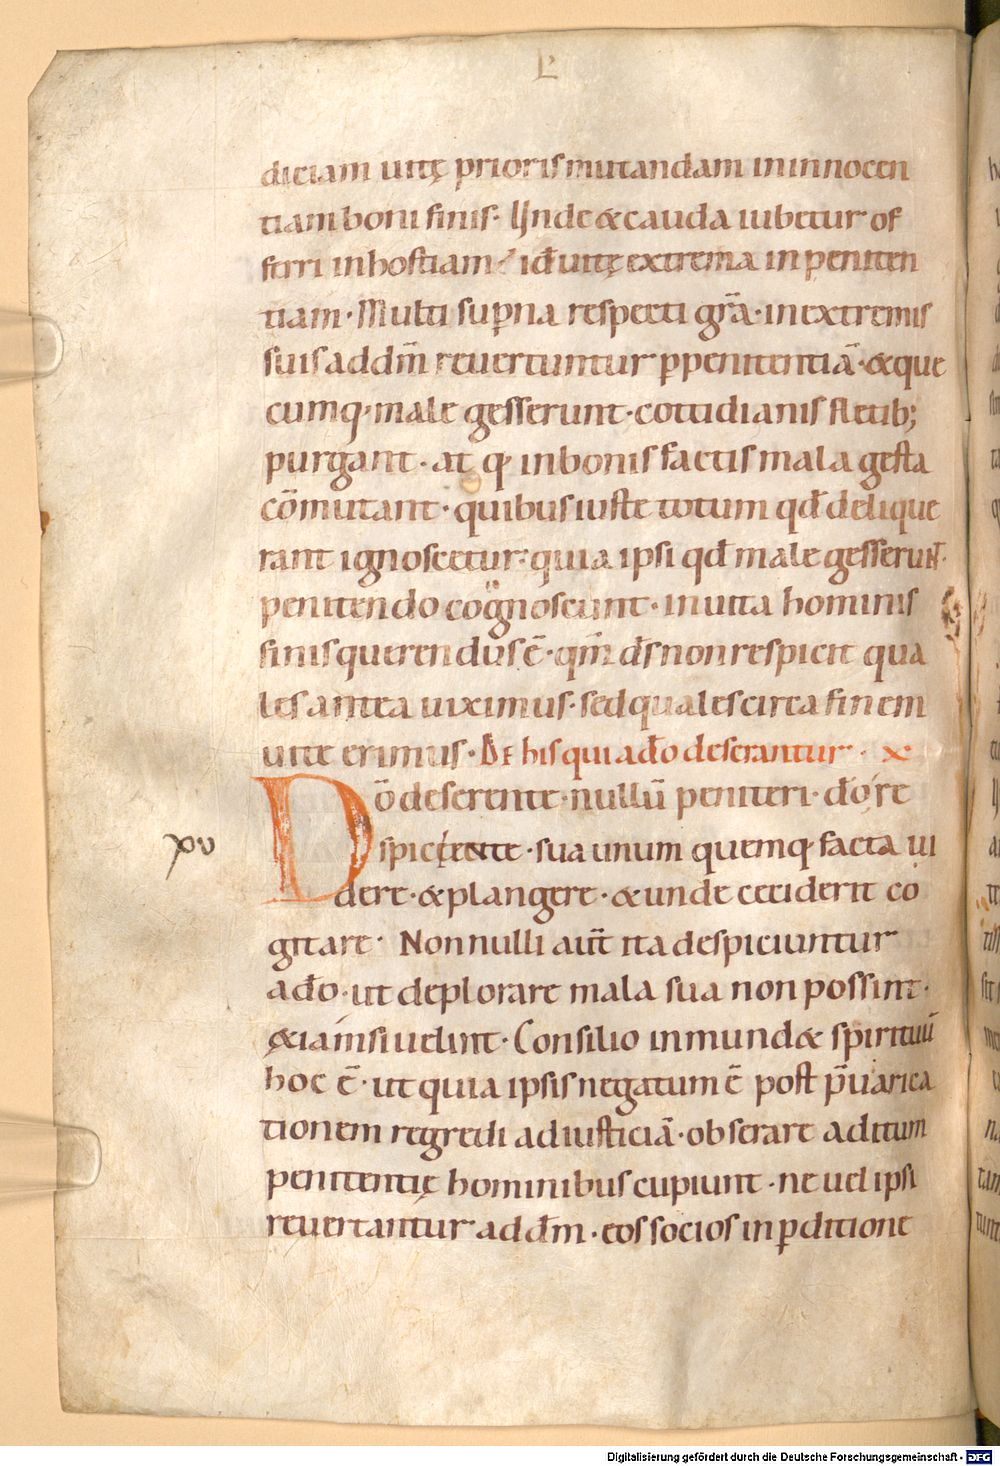 L
diciam uitę prioris mutandam in innocen
tiam boni finis. Unde & cauda iubetur of
ferri in hostiam. id ÷ uitę extrema in peniten
tiam. Multi sup̱na respecti gr̄a. in extremis
suis ad dm̄ reuertuntur p̱ penitentiā. & que
cumq; male gesserunt. cottidianis fletib;
purgant. atq; in bonis factis mala gesta
cōmutant. quibus iuste totum qđ delique
rant ignoscetur. quia ipsi qđ male gesserunt.
penitendo cognoscunt. in uita hominis
finis querendus ē. qm̄ ds̄ non respicit qua
les antea uiximus. sed quales circa finem
uite erimus. De his qui a dō deserantur. x
Dō deserente. nullū peniteri. dō re
xv
spiciente. sua unum quemq; facta ui
dere. & plangere. & unde ceciderit co
gitare. Nonnulli aūt ita despiciuntur
a dō. ut deplorare mala sua non possint.
& iam si uelint. Consilio inmundæ spirituū
hoc ē. ut quia ipsis negatum ē post p̄uarica
tionem regredi ad iusticiā. obserare aditum
penitentię hominibus cupiunt. ne uel ipsi
reuertantur ad dm̄. eos socios in p̱ditione
Digitalisierung gefördert durch die Deutsche Forschungsgemeinschaft - DFG